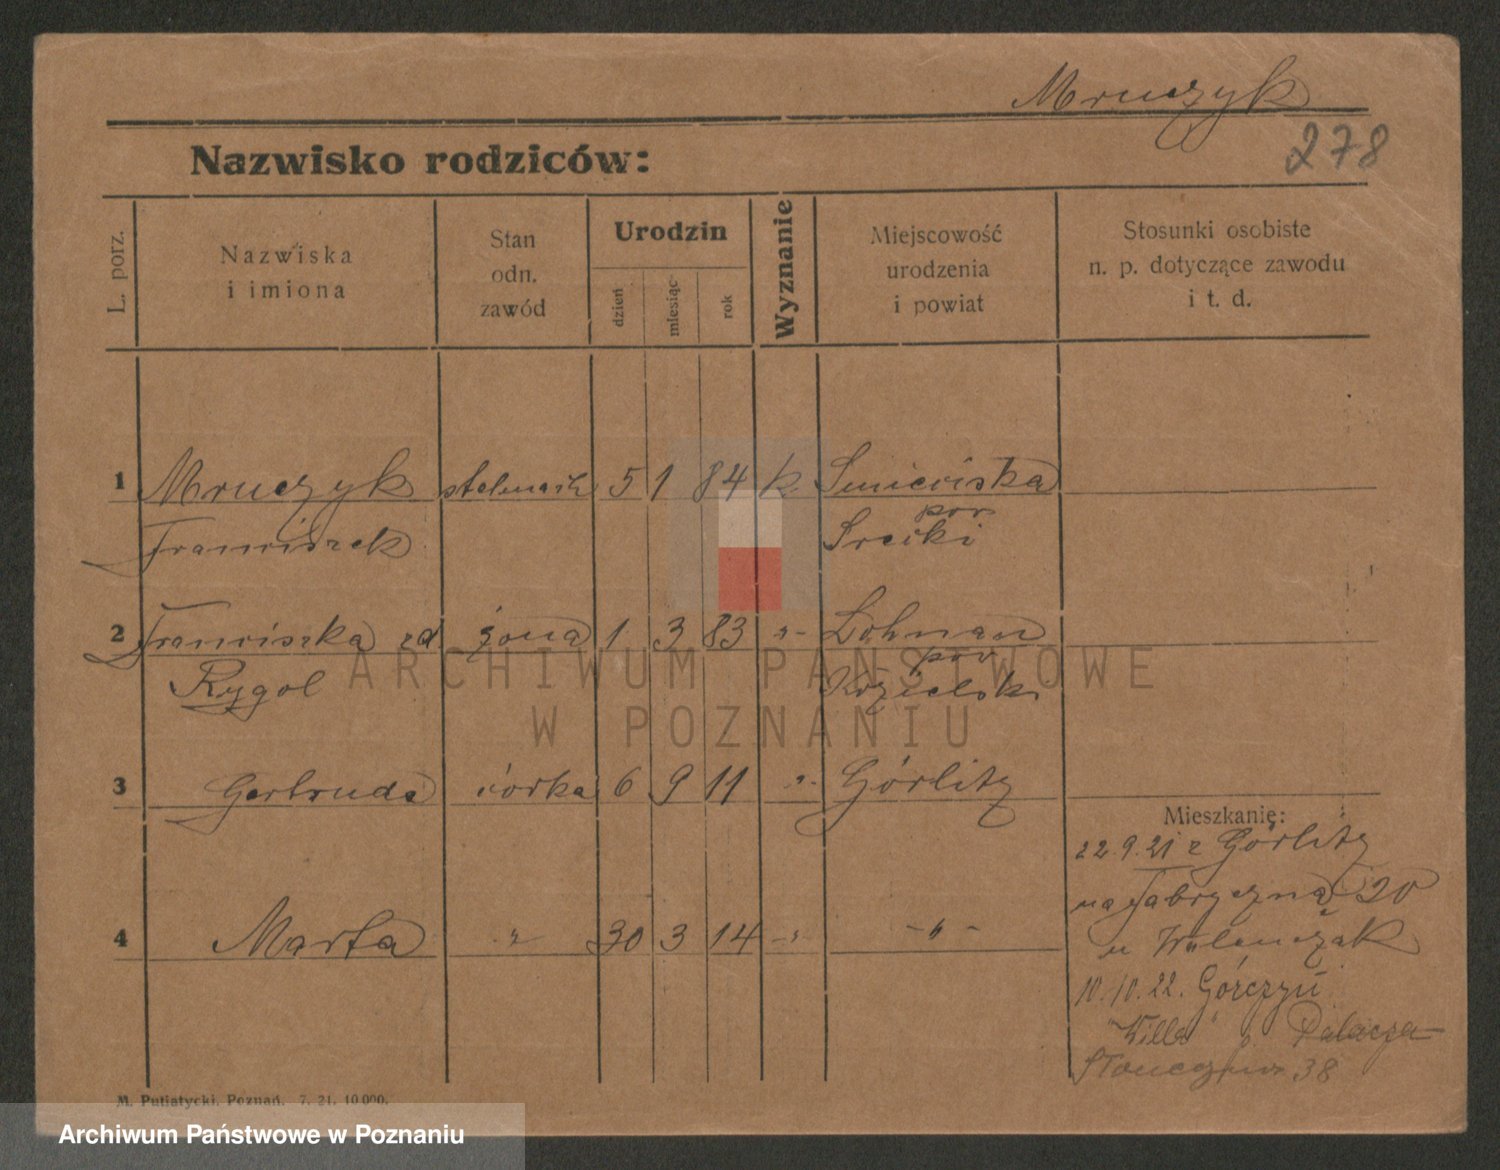 Mruczyk
278
Nazwisko rodziców:
L. porz.
Nazwiska
i imiona
Stan
odn.
zawód
Urodzin
dzień
miesiąc
rok
Wyznanie
Miejscowość
urodzenia
i powiat
Stosunki osobiste
n. p. dotyczące zawodu
i t. d.
1 Mruczyk stelmach 5 1 84 k.
Franciszek pow
2 Franciszka zd żona 1 3 83 -"- Lohnau
Rygol pow
Kozielski
3 Gertruda córka 6 9 11 " Görlitz
4 Marta " 30 3 14 -"- -"-
Mieszkanie:
22.9.21 z Görlitz
na Fabryczną 20
u
10.10.22. Górczyn
"Willa" p. Palacza
Słoneczna 38
M. Putiatycki, Poznań. 7. 21. 10 000.
ARCHIWUM PAŃSTWOWE
W POZNANIU
Archiwum Państwowe w Poznaniu